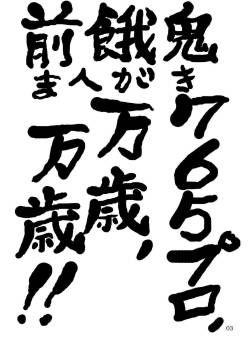 鬼き765プロ,
餓が万歳,
前ま人万歳!!
03